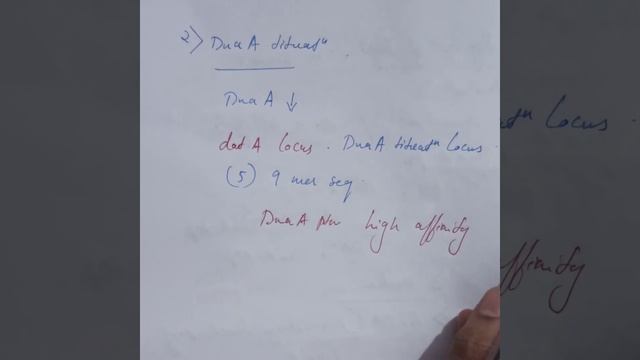 2) DnaA titratⁿ
DnaA ↓
datA locus. DnaA titratⁿ locus.
(5) 9 mer seq.
DnaA high affinity